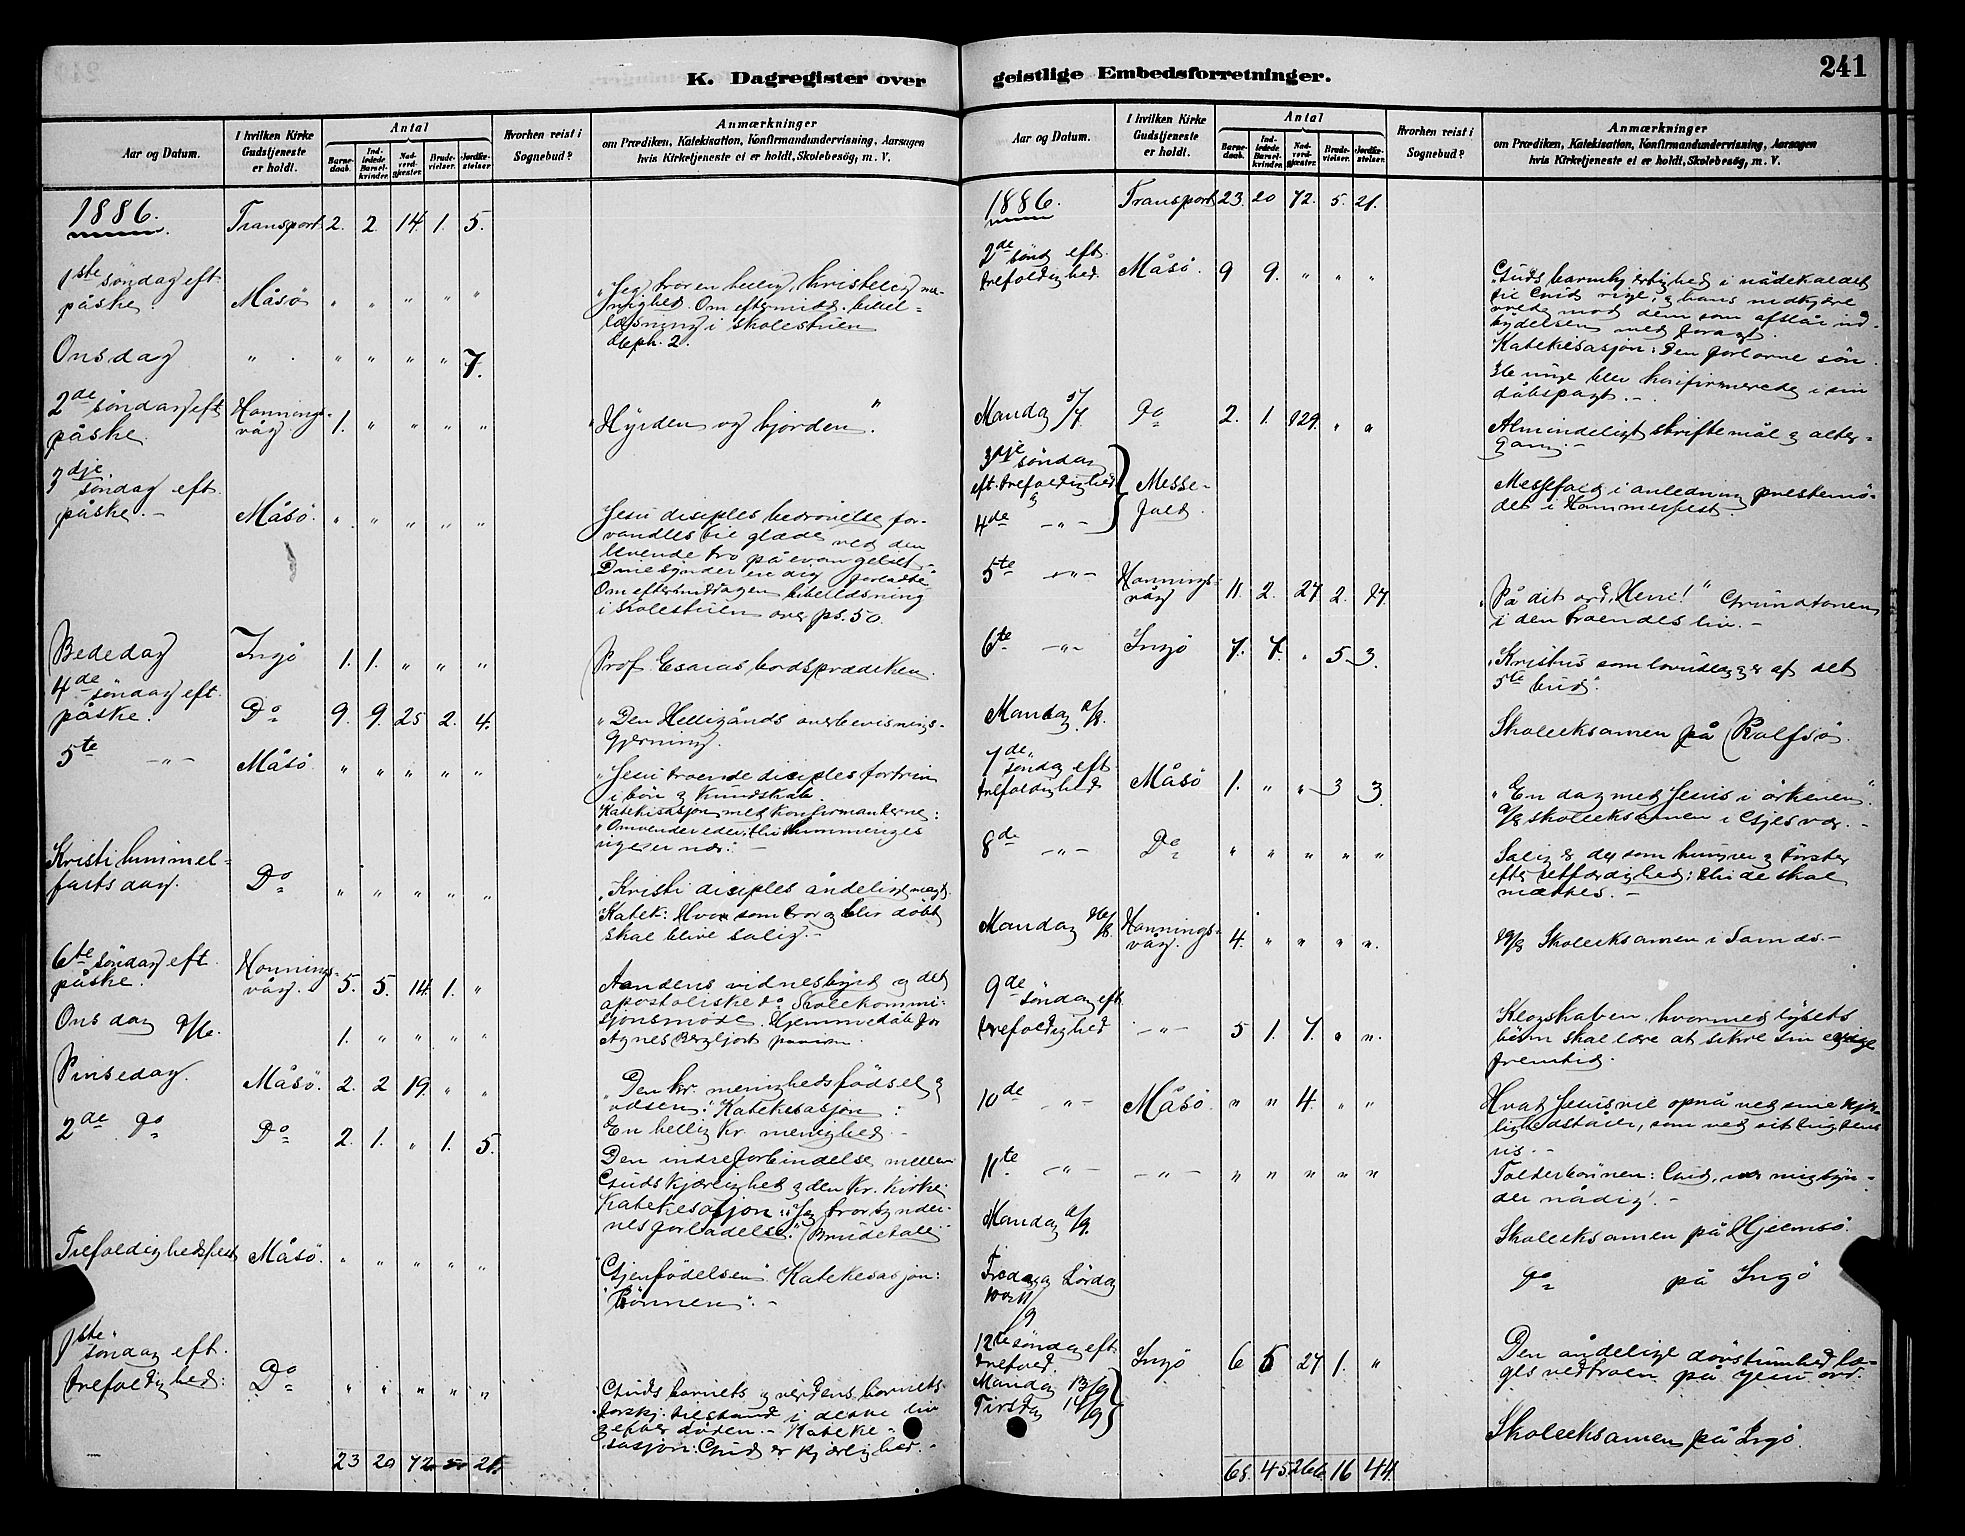 K. Dagregister over
geistlige Embedsforretninger.
241
Aar og Datum.
I hvilken Kirke
Gudstjeneste
er holdt.
Antal
Barne-
daab.
Ind-
ledede
Barsel-
kvinder.
Nad-
verd-
gjæster.
Brude-
vielser.
Jordfæ-
stelser.
Hvorhen reist i
Sognebud?
Anmærkninger
om Prædiken, Katekisation, Konfirmandundervisning, Aarsagen
hvis Kirketjeneste ei er holdt, Skolebesøg, m. V.
1886. Transport 2. 2. 14. 1. 5.
1ste søndag eft.
påske. Måsø " " " " "
"Jeg tror en hellig, kristelig me-
nighed. Om eftermidd. bibel-
læsning i skolestuen
Eph. 2.
Onsdag " " " " " 7.
2de søndag eft
påske. Honnings-
våg 1. " " " "
"Hyrden og hjorden."
3dje søndag eft.
påske. - Måsø. " " " " "
Jesu disiples bedrøvelse for-
vandles til glæde ved den
levende tro på evangeliet
Dine synder ere dig forladte
Om eftermiddagen bibellæsning
i skolestuen over ps. 50.
Bededag Ingø 1. 1. " " "
Prof Esaias bodsprædiken.
4de søndag eft.
påske. Do 9. 9. 25 2. 4.
"Den Helligånds overbevisnings-
gjerning.
5te -"- Måsø " " " " "
"Jesu troende disiples fortrin
i bøn og kundskab
Katekisasjon med konfirmanterne:
"Omvender eder, thi himmeriges
rige er nær." -
Kristi himmel-
fartsdag. Do " " " " "
"Kristi disiples åndelige magt.
Katek: Hvo som tror og blir døbt
skal blive salig -
6te søndag eft.
påske. Honnings-
våg. 5. 5. 14. 1. "
Aandens vidnesbyrd og det
apostoliske do Skolekommi-
sjonsmøde. Hjemmedåb for
Agnes Bergljot
Onsdag 9/6. 1. " " " "
Pinsedag. Måsø. 2. 2 19. " "
"Den kr. menigheds fødsel og
væsen." Katekesasjon:
En hellig kr. menighed. -
2de do Do 2. 1. " 1. 5.
Den indre forbindelse mellem
Guds kjærlighed og den kr. kirke.
Katekesasjon: "Jeg tror synder-
nes forladelse." (Brudetale
Trefoldighedsfest Måsø. " " " " "
"Gjenfødelsen". Katekesasjon:
"Bønnen". -
1ste søndag eft.
trefoldighed: Do " " " " "
Guds barnets og verdens barnets
forskj. tilstand i dette liv
og efter døden. - Kateke-
sasjon: Gud er kjærlighed. -
23 20 72 21.
Aar og Datum.
I hvilken Kirke
Gudstjeneste
er holdt.
Antal
Barne-
daab.
Ind-
ledede
Barsel-
kvinder.
Nad-
verd-
gjæster.
Brude-
vielser.
Jordfæ-
stelser.
Hvorhen reist i
Sognebud?
Anmærkninger
om Prædiken, Katekisation, Konfirmandundervisning, Aarsagen
hvis Kirketjeneste ei er holdt, Skolebesøg, m. V.
1886. Transport 23. 20 72. 5. 21.
2de sønd eft.
trefoldighed. Måsø. 9 9. " " "
"Guds barmhjertighed i nådekaldet
til Guds rige, og hans nidkjære
vrede mod dem som afslår ind-
bydelsen med foragt.
Katekisasjon: Den fortorne søn
36 unge blev konfirmerede i sin
dåbspagt. -
Mandag 5/7. do 2. 1. 129. " "
Almindeligt skriftemål og alter-
gang. -
3dje søndag
eft. trefoldighed
og
4de -"- Messe-
fald.
Messefald i anledning prestemø-
det i Hammerfest.
5te -"- Honnings-
våg 11. 2. 27 2. 17.
"På dit ord, Herre!" Grundtonen
i den troendes liv. -
6te -"- Ingø 7. 7. " 5 3.
"Kristus som lovudlægger af det
5te bud".
Mandag 2/8.
Skoleeksamen på Rolfsø.
7de søndag eft.
trefoldighed Måsø 1. " " 3 3.
"En dag med Jesus i ørkenen".
9/8 skoleeksamen i Gjesvær. -
8de -"- Do " " " " "
Salig er den som hungrer og tørster
efter retfærdighed: thi de skal
mættes. -
Mandag 16/8. Honnings-
våg. 4. " " " "
19/8 Skoleeksamen i Sands. -
9de søndag eft.
trefoldighed -"- 5 1. 7. " "
Klogskaben, hvormed lysets
børn skal lære at sikre sin evige
fremtid.
10de -"- Måsø. " " 4. " "
Hvad Jesus vil opnå ved sine kjær-
lighedstårer, som ved sit tugtens
ris. -
11te -"- -"- " " " " "
Tolderbønnen: Gud, vær mig syn-
der nådig! -
Mandag 6/9.
Skoleeksamen på Hjelmsø.
Fredag og Lørdag
10 og 11/9
do på Ingø
12te søndag eft.
trefold. Ingø 6 5 27 1. "
Den åndelige døvstumhed læ-
ges ved troen på Jesu ord.
Mandag 13/9
Tirsdag 14/9
Skoleeksamen på Ingø.
68. 45 266. 16 44.